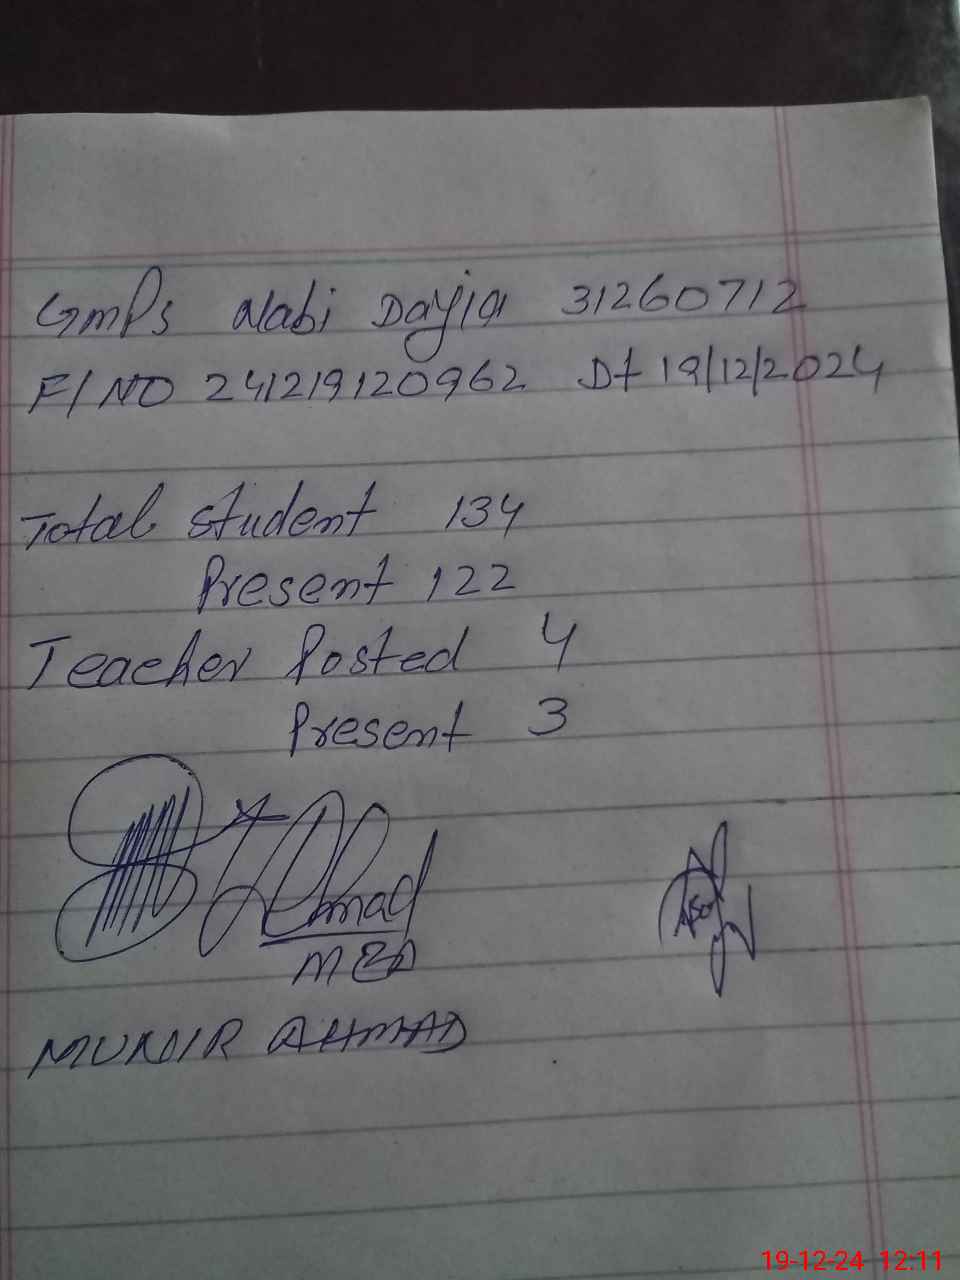 GmPs Nabi Dayia 31260712
F/NO 241219120962 Dt 19/12/2024
Total Student 134
Present 122
Teacher Posted 4
Present 3
Ahmad
MEA
MUNIR AHMAD
19-12-24 12:11